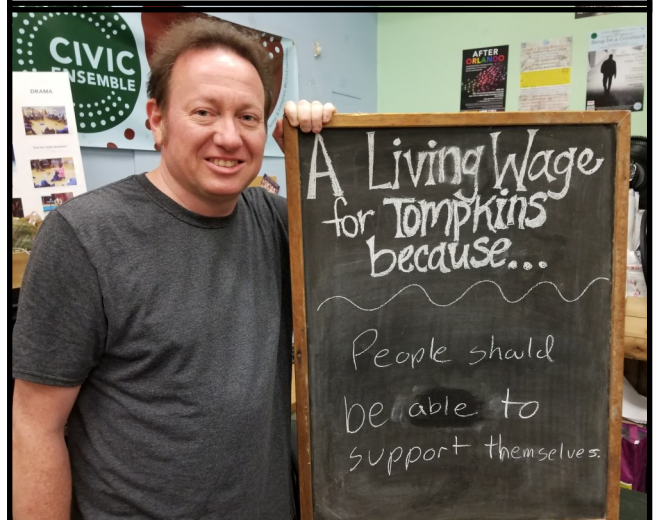 CIVIC
ENSEMBLE
DRAMA
AFTER
ORLANDO
A Living Wage
for Tompkins
because...
People should
be able to
support themselves.